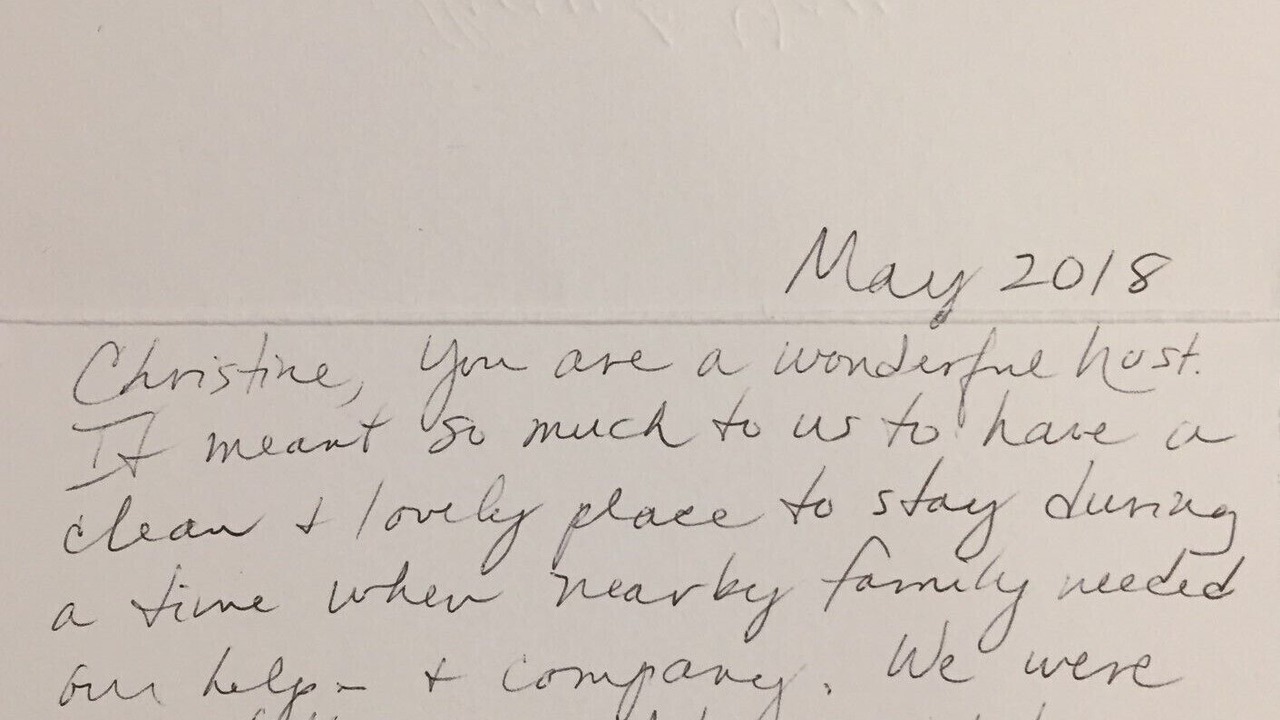 May 2018
Christine, You are a wonderful host.
It meant so much to us to have a
clean + lovely place to stay during
a time when nearby family needed
our help - + company. We were